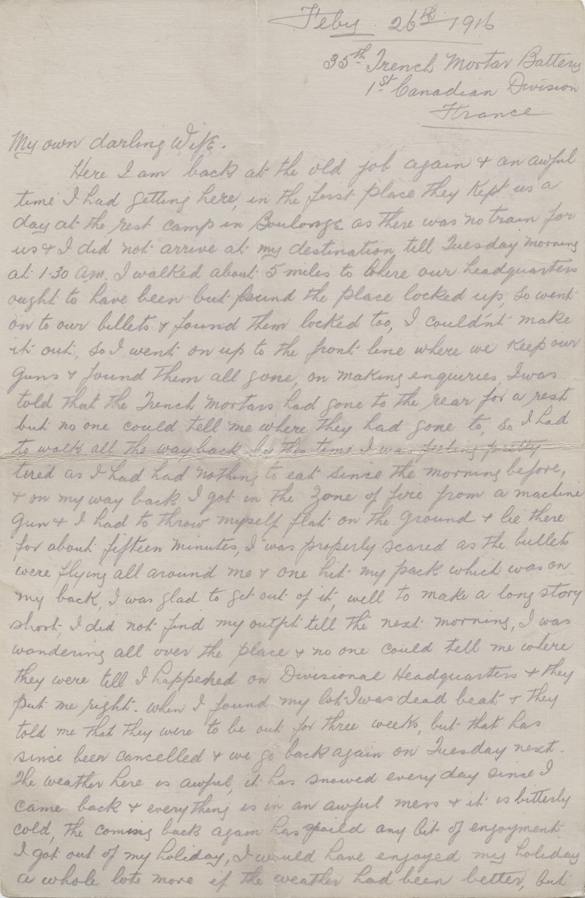 Feby 26th 1916
35th Trench Mortar Battery
1st Canadian Division
France
My own darling Wife.
Here I am back at the old job again & an awful
time I had getting here, in the first place they kept us a
day at the rest camp in Boulonge as there was no train for
us & I did not arrive at my destination till Tuesday morning
at 1.30 am. I walked about 5 miles to where our headquarters
ought to have been but found the place locked up, so went
on to our billets & found them locked too, I couldn't make
it out, so I went on up to the front line where we keep our
guns & found them all gone, on making enquiries, I was
told that the Trench Mortars had gone to the rear for a rest
but no one could tell me where they had gone to, so I had
to walk all the way back, by this time I was feeling pretty
tired as I had had nothing to eat since the morning before,
& on my way back I got in the zone of fire from a machine
gun & I had to throw myself flat on the ground & lie there
for about fifteen minutes, I was properly scared as the bullets
were flying all around me & one hit my pack which was on
my back, I was glad to get out of it, well to make a long story
short, I did not find my outfit till the next morning, I was
wandering all over the place & no one could tell me where
they were till I happened on Divisional Headquarters & they
put me right. when I found my lot I was dead beat & they
told me that they were to be out for three weeks, but that has
since been cancelled & we go back again on Tuesday next.
The weather here is awful, it has snowed every day since I
came back & everything is in an awful mess & it is bitterly
cold, the coming back again has spoiled any bit of enjoyment
I got out of my holiday, I would have enjoyed my holiday
a whole lots more if the weather had been better, but